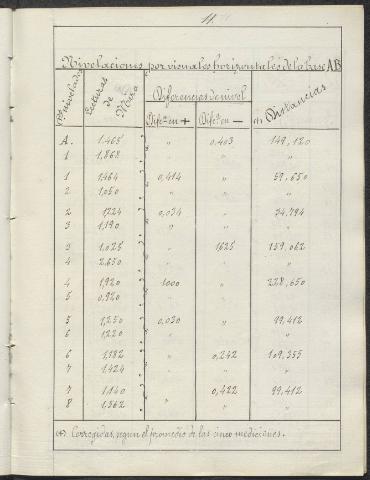 11.
Nivelaciones por visuales horizontales de la base AB
Pts nivelados Lecturas de Mira Diferencias de nivel (+) Distancias
Difcia en + Difcia en —
A. 1.465 " 0,403 149,120
1 1,868 " " "
1 1,464 0,414 " 59,650
2 1,050 " " "
2 1224 0,034 " 34,794
3 1,190 " " "
3 1,025 " 1625 159,062
4 2,650 " " "
4 1,920 1000 " 228,650
5 0,920 " " "
5 1,250 0,030 " 99,412
6 1,220 " " "
6 1,182 " 0,242 109,355
7 1,424 " " "
7 1,140 " 0,422 99,412
8 1,562 " " "
(+) Corregidas, segun el promedio de las cinco mediciones.